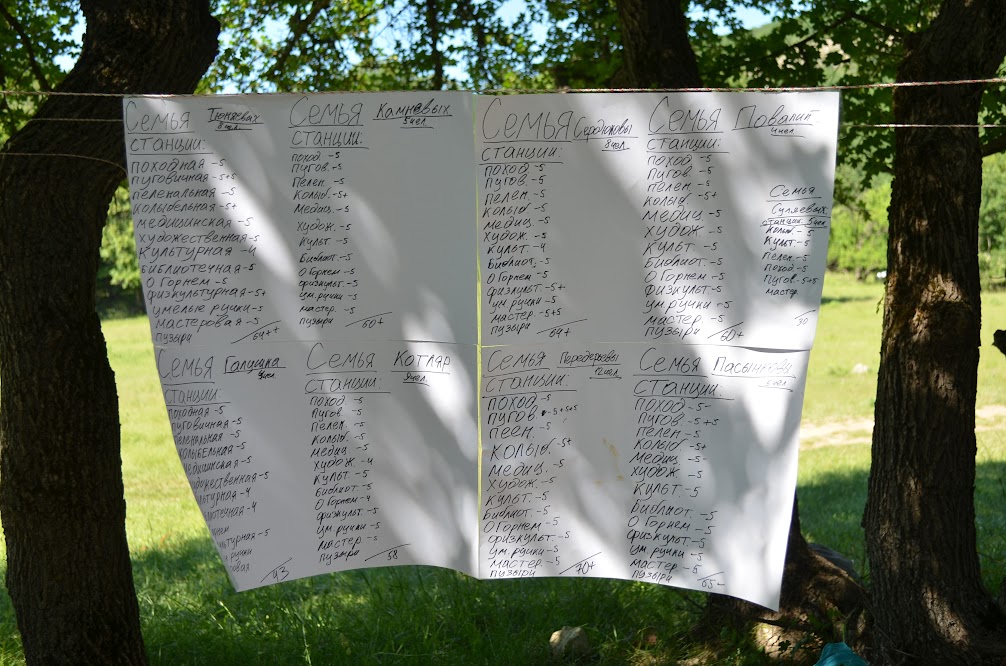 Семья Тюняевых
8 чел.
станции:
походная -5
пуговичная -5+5
пеленальная -5
колыбельная -5+
медицинская -5
художественная -5
культурная -4
библиотечная -5
О Горнем -5
физкультурная -5+
умелые ручки -5
мастеровая -5
пузыри
64++
Семья Камневых
5 чел.
станции:
поход. -5
пугов. +5
пелен. -5
колыб. -5+
медиц. -5
худож. -5
культ -5
библиот. -5
О Горнем -5
физкульт. -5
ум. ручки -5
мастер. -5
пузыри
60+
Семья
8 чел.
станции:
поход -5
пугов. -5
пелен. -5
колыб -5
медиц. -5
худож. -5
культ -4
библиот. -5
О Горнем -5
физкульт -5+
ум ручки -5
мастер. -5+5
пузыри
64+
Семья Повалий
4 чел.
станции:
поход -5
пугов. -5
пелен -5
колыб -5+
медиц -5
худож -5
культ. -5
библиот -5
О Горнем -5
физкульт -5
ум. ручки -5
мастер. -5
пузыри
60+
Семья
Суляевых
станции. 5 чел.
колыб. -5
культ. -5
пелен. -5
поход. -5
пугов. -5+5
мастер.
30
Семья Галушка
чел.
станции:
походная -5
пуговичная -5
пеленальная -5
колыбельная -5
медицинская -5
-5
-4
-5
-5
43
Семья Котляр
чел.
станции:
поход -5
пугов. -5
пелен. -5
колыб. -5
медиц -5
худож. -4
культ. -5
библиот. -5
О Горнем -4
физкульт. -5
ум. ручки -5
мастер -5
пузыри
58
Семья
12 чел.
станции:
поход -5
пугов -5+5+5
пеен. -5
колыб. -5+
медиц. -5
худож. -5
культ. -5
библиот. -5
О Горнем -5
физкульт -5
ум. ручки -5
мастер. -5
пузыри
70+
Семья
чел.
станции:
поход -5-
пугов. -5+5
пелен -5
колыб -5+
медиц. -5-
худож -5
культ. -5
библиот -5
О Горнем -5
физкульт -5
ум. ручки -5
мастер -5
пузыри
65-